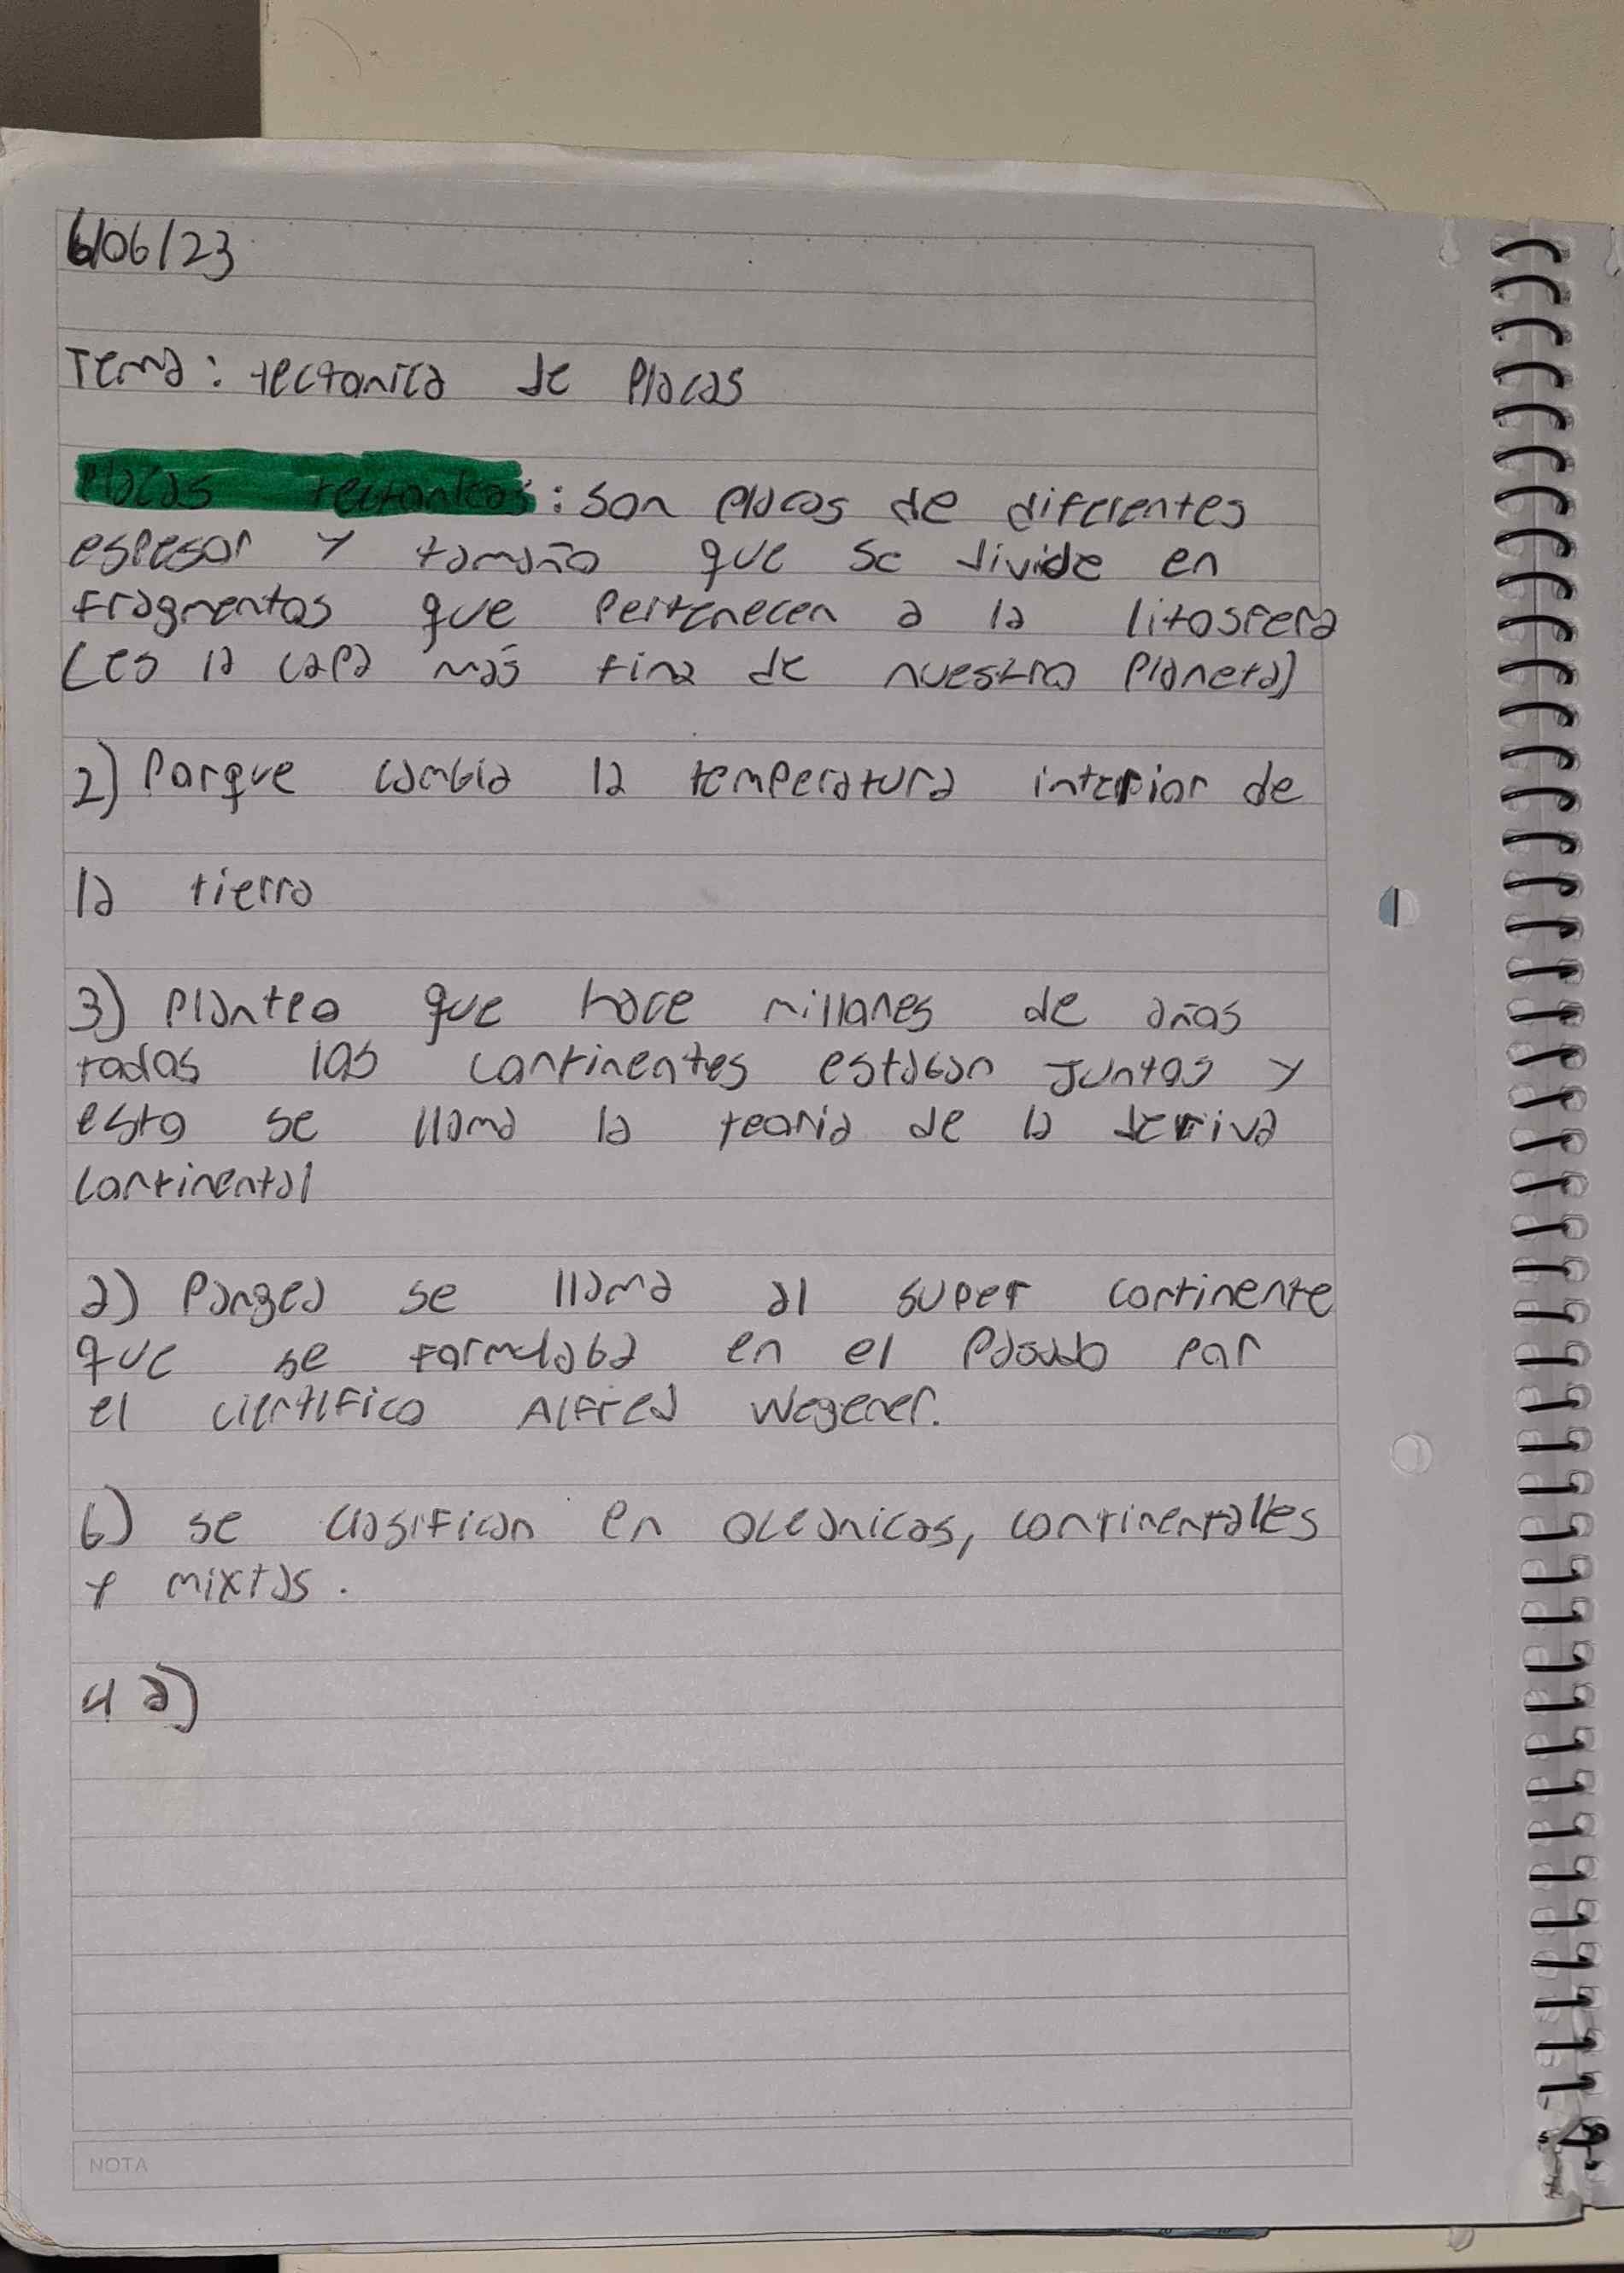 6/06/23
Tema: tectonica de Placas
Placas tectonicas: son placas de diferentes
espesor y tamaño que se divide en
fragmentos que pertenecen a la litosfera
(es la capa más fina de nuestro planeta)
2) Porque cambia la temperatura interior de
la tierra
3) Planteo que hace millones de años
todos los continentes estaban juntos y
esto se llama la teoria de la deriva
continental
a) Pangea se llama al super continente
que se formulaba en el pasado por
el cientifico Alfred Wegener.
b) se clasifican en oceanicas, continentalles
y mixtas.
4 a)
NOTA